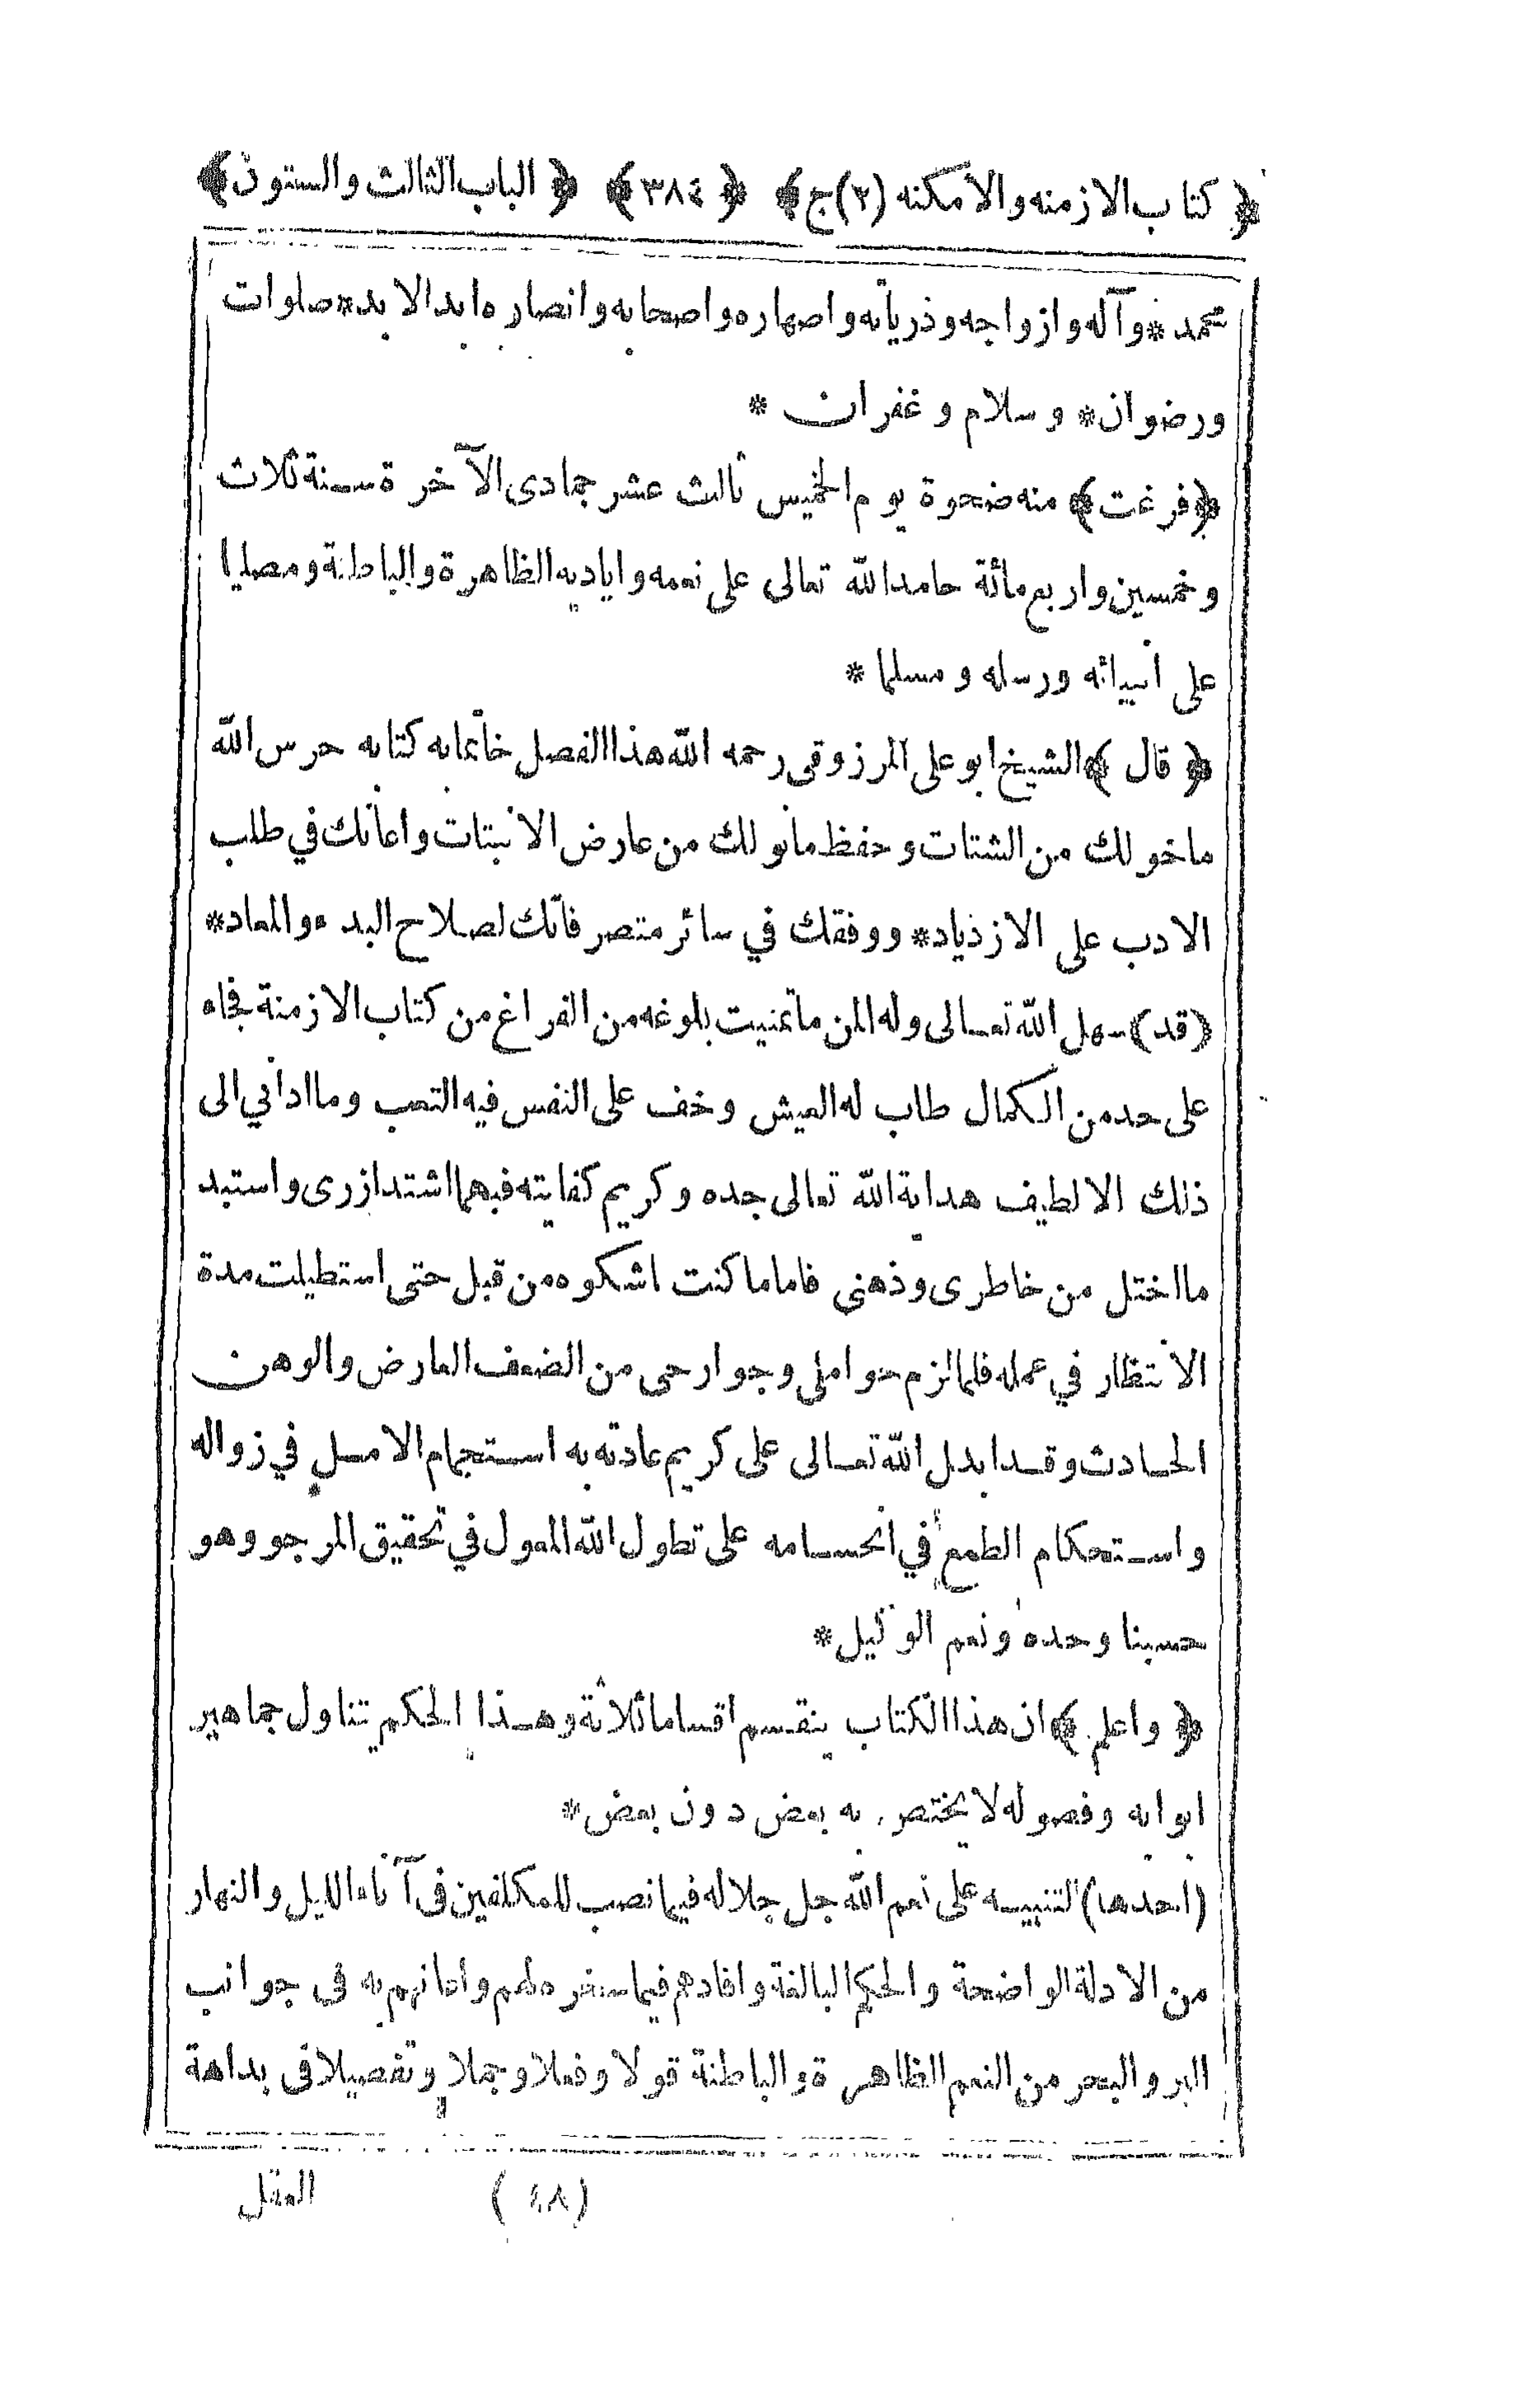 ﴿ كتاب الازمنه والامكنه (٢) ج ﴾ ﴿ ٣٨٤ ﴾ ﴿ الباب الثالث والستون ﴾
محمد * وآله وازواجه وذرياته واصهاره واصحابه وانصاره ابد الابد * صلوات
ورضوان * وسلام وغفران *
﴿ فرغت ﴾ منه ضحوة يوم الخميس ثالث عشر جمادى الآخرة سنة ثلاث
وخمسين واربع مائة حامد الله تعالى على نعمه واياديه الظاهرة والباطنة ومصليا
على انبيائه ورسله ومسلما *
﴿ قال ﴾ الشيخ ابو على المرزوقى رحمه الله هذا الفصل خاتما به كتابه حرس الله
ماخولك من الشتات وحفظ مانولك من عارض الانبتات واعانك في طلب
الادب على الازذياد * ووفقك في سائر متصرفاتك لصلاح البدء والمعاد *
(قد) سهل الله تعالى وله المن ماتمنيت بلوغه من الفراغ من كتاب الازمنة فجاء
على حد من الكمال طاب له العيش وخف على النفس فيه التعب وما ادانى الى
ذلك الا لطيف هداية الله تعالى جده وكريم كفايته فبهما اشتد ازرى واستبد
ما اختل من خاطرى وذهنى فاما ما كنت اشكوه من قبل حتى استطيلت مدة
الانتظار في عمله فلما لزم حواملى وجوارحى من الضعف العارض والوهن
الحادث وقد ابدل الله تعالى على كريم عادته به استجمام الامل في زواله
واستحكام الطمع في انحسامه على تطول الله المعول في تحقيق المرجو وهو
حسبنا وحده ونعم الوكيل *
﴿ واعلم ﴾ ان هذا الكتاب ينقسم اقساما ثلاثة وهذا الحكم يتناول جماهير
ابوابه وفصوله لا يختصر به بعض دون بعض *
(احدها) التنبيه على نعم الله جل جلاله فيما نصب للمكلفين فى آناء الليل والنهار
من الادلة الواضحة والحكم البالغة وافادهم فيما سخره لهم واعانهم به فى جوانب
البر والبحر من النعم الظاهرة والباطنة قولا وفعلا وجملا وتفصيلا فى بداهة
(٤٨) العقل